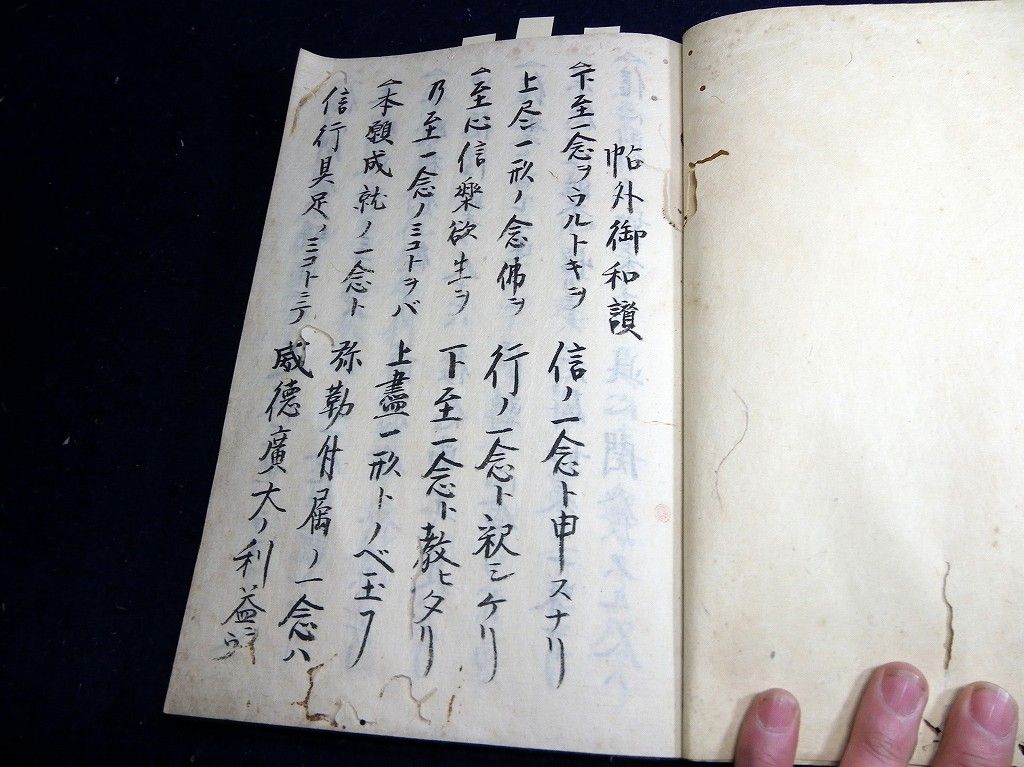 帖外御和讃
下至一念ヲウルトキヲ 信ノ一念ト申スナリ
上尽一形ノ念佛ヲ 行ノ一念ト釈シケリ
至心信楽欲生ヲ 下至一念ト教ヒタリ
乃至一念ノミコトヲバ 上盡一形トノベ玉フ
本願成就ノ一念ト 弥勒付属ノ一念ハ
信行具足ノミコトニテ 威徳廣大ノ利益